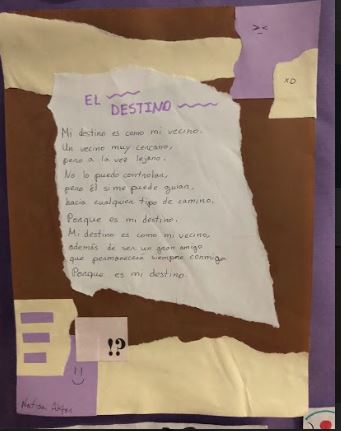 >.<
XD
EL
DESTINO
Mi destino es como mi vecino.
Un vecino muy cercano,
pero a la vez lejano.
No lo puedo controlar,
pero él si me puede guiar,
hacia cualquier tipo de camino.
Porque es mi destino.
Mi destino es como mi vecino,
además de ser un gran amigo
que permanecerá siempre conmigo
Porque es mi destino.
!?
:)